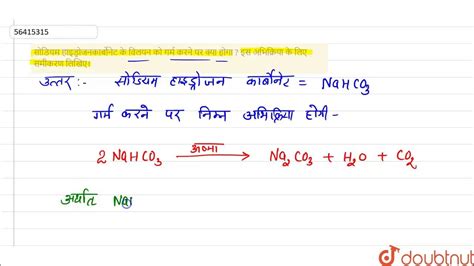 56415315
सोडियम हाइड्रोजनकार्बोनेट के विलयन को गर्म करने पर क्या होगा ? इस अभिक्रिया के लिए
समीकरण लिखिए।
उत्तर :- सोडियम हाइड्रोजन कार्बोनेट = NaHCO3
गर्म करने पर निम्न अभिक्रिया होगी -
2 NaHCO3 ऊष्मा → Na2CO3 + H2O + CO2
अर्थात NaH
doubtnut